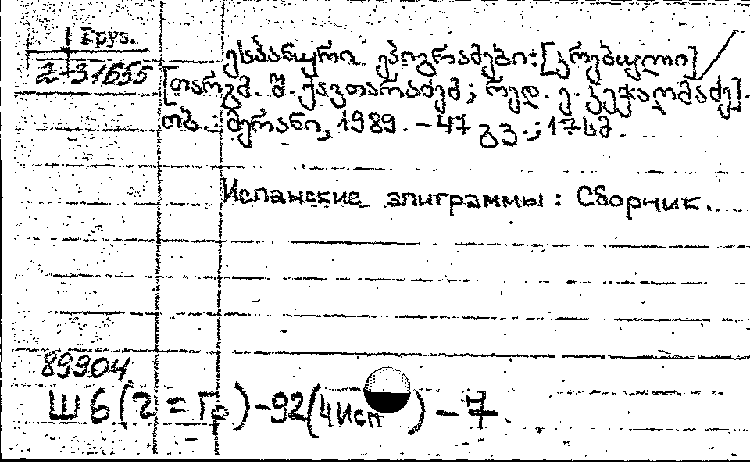 Груз.
2-31655
ესპანური ეპიგრამები: [კრებული]
[თარგმ. შ. ჟავთარაძემ; რედ. ე. კეჭაღმაძე].
თბ.: მერანი, 1989. - 47 გვ.; 17სმ.
Испанские эпиграммы: Сборник.
89904
Ш6(2=Гр)-92(4Исп)-7.